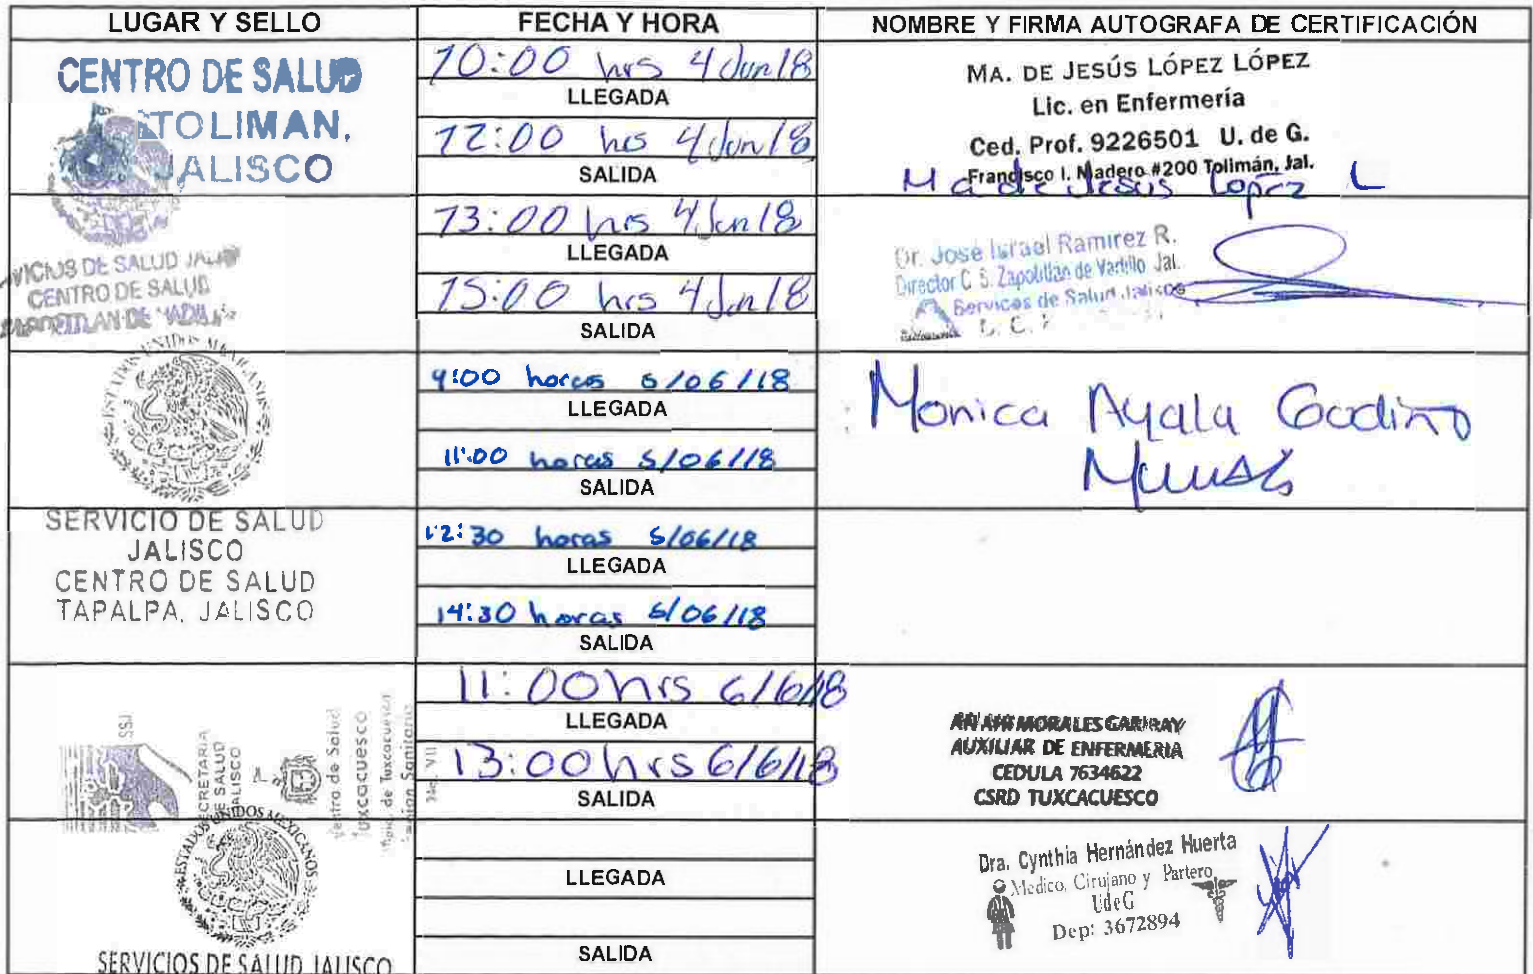 LUGAR Y SELLO FECHA Y HORA NOMBRE Y FIRMA AUTOGRAFA DE CERTIFICACIÓN
CENTRO DE SALUD
TOLIMAN,
JALISCO
10:00 hrs 4 Jun 18
LLEGADA
12:00 hrs 4 Jun 18
SALIDA
MA. DE JESÚS LÓPEZ LÓPEZ
Lic. en Enfermería
Ced. Prof. 9226501 U. de G.
Francisco I. Madero #200 Tolimán, Jal.
Ma de Jesus Lopez L
VICIOS DE SALUD JALIS
CENTRO DE SALUD
13:00 hrs 4 Jun 18
LLEGADA
15:00 hrs 4 Jun 18
SALIDA
Dr. José Israel Ramirez R.
Director C. S. Zapotitlan de Vadillo Jal.
Servicios de Salud Jalisco
ESTADOS UNIDOS MEXICANOS
9:00 horas 5/06/18
LLEGADA
11:00 horas 5/06/18
SALIDA
Monica Ayala Godino
SERVICIO DE SALUD
JALISCO
CENTRO DE SALUD
TAPALPA, JALISCO
12:30 horas 5/06/18
LLEGADA
14:30 horas 5/06/18
SALIDA
SSJ
SECRETARIA
DE SALUD
JALISCO
Centro de Salud
Tuxcacuesco
Mpio. de Tuxcacuesco
Region Sanitaria
VII
11:00 hrs 6/6/18
LLEGADA
13:00 hrs 6/6/18
SALIDA
ANAHI MORALES GARIRAY
AUXILIAR DE ENFERMERIA
CEDULA 7634622
CSRD TUXCACUESCO
ESTADOS UNIDOS MEXICANOS
SERVICIOS DE SALUD JALISCO
LLEGADA
SALIDA
Dra. Cynthia Hernández Huerta
Medico, Cirujano y Partero
UdeG
Dep: 3672894